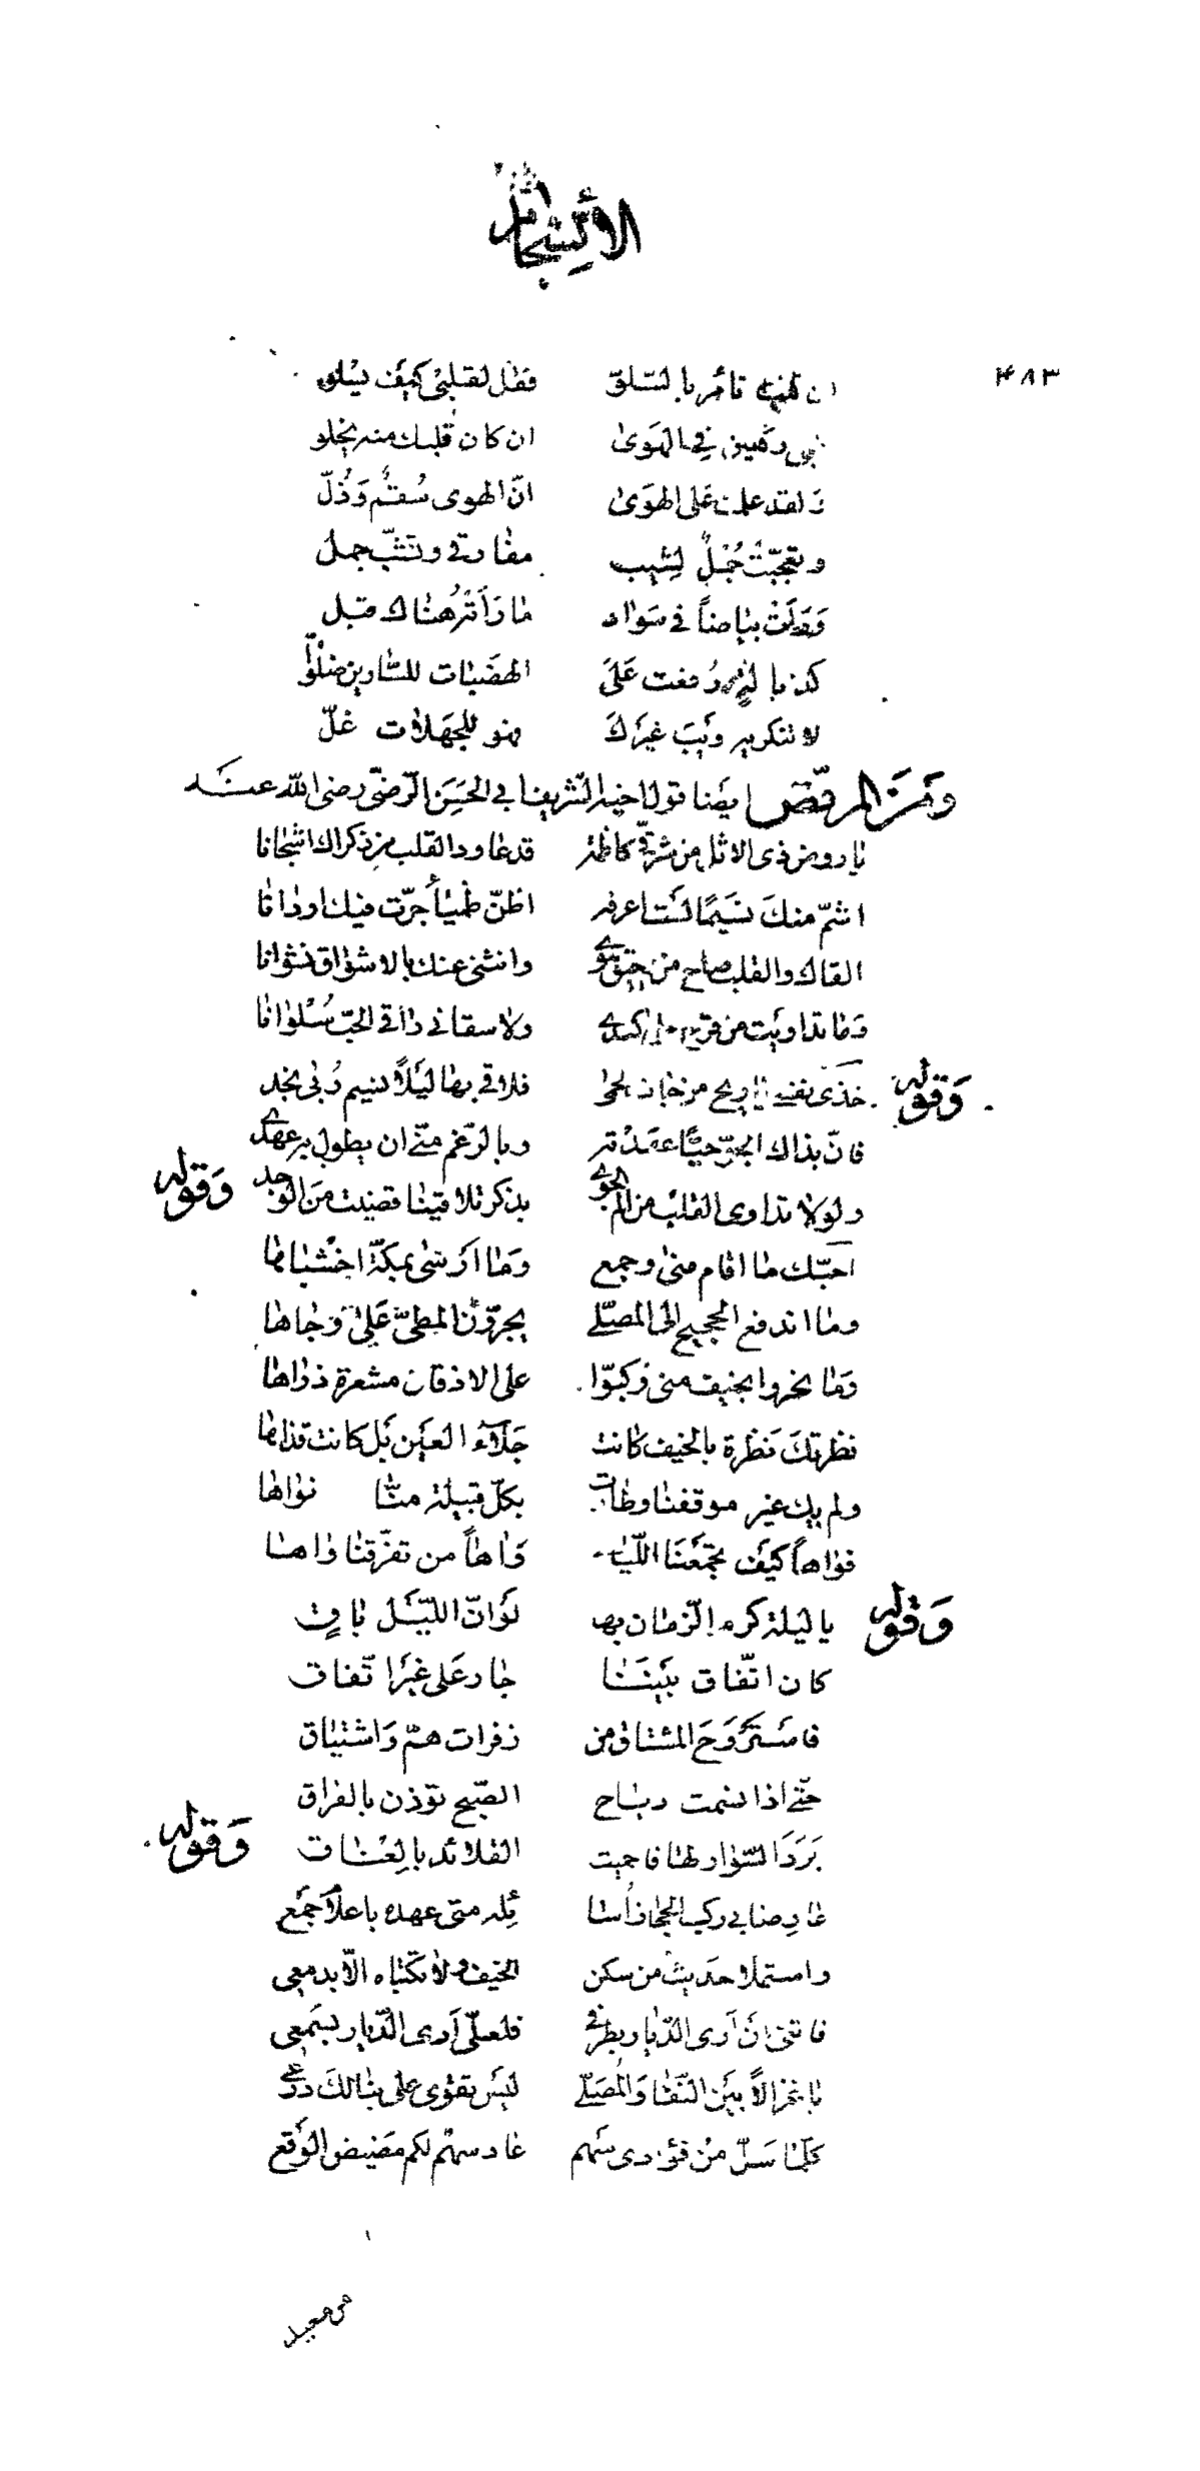 الانسجام
٤٨٣
ان كنت تأمر بالتسلّي فقل لقلبي كيف يسلو
قلبي رهين في الهوى ان كان قلبك منه يخلو
ولقد علمت على الهوى انّ الهوى سُقمٌ وذُلّ
وتعجّبت جُملٌ لشيب مفارقي وتشيب جمل
ورأت بياضاً في سواد ما رأته هناك قبل
كذبالةٍ رُفعت على الهضبات للسّارين ضلّوا
لا تنكريه ويب غيرك فهو للجهلات غلّ
ومن المرقّص ايضا قول اخيه الشريف ابي الحسن الرّضيّ رضي الله عنه
يا روض ذي الاثل من شرقيّ كاظمة قد عاود القلب من ذكراك اشجانا
اشمّ منك نسيمًا لست اعرفه اظنّ ظمياً جرّت فيك اردانا
القاك والقلب صاح من وانثني عنك بالاشواق نشوانا
وما تداويت من ولا سقاني راقي الحبّ سُلوانا
وقوله
خذي نفسي يا ريح من جانب الحمى فلاقي بها ليلاً نسيم رُبى نجد
فانّ بذاك الجوّ حيًّا عهدته وبالرّغم منّي ان يطول به عهدي
ولولا تداوي القلب من الم الجوى بذكر تلاقينا قضيت من الوجد
وقوله
احبّك ما اقام منى وجمع وما ارسى بمكّة اخشباها
وما اندفع الحجيج الى المصلّى يجرّون المطيّ على وجاها
وما نحروا بخيف منى وكبّوا على الاذقان مشعرة ذراها
نظرتك نظرة بالخيف كانت جلاء العين بل كانت قذاها
ولم يك غير موقفنا وطارت بكلّ قبيلة منّا نواها
فواهاً كيف تجمعنا اللّيالي وآهاً من تفرّقنا واها
وقوله
يا ليلة كرم الزمان بها لو انّ الليل باقٍ
كان اتّفاق بيننا جار على غير اتّفاق
فاستروح المشتاق من زفرات همّ واشتياق
حتّى اذا نسمت رياح الصّبح تؤذن بالفراق
برد السّوار لها فاحميت القلائد بالعناق
وقوله
عارضا بي ركب الحجاز أسائله متى عهده باعلام جمع
واستملا حديث من سكن الخيف ولا تكتباه الّا بدمعي
فاتني ان أرى الدّيار بطرفي فلعلّي أرى الدّيار بسمعي
يا غزالاً بين النّقا والمصلّى ليس تقوى على نبالك درعي
كلّما سلّ من فؤادي سهم عاد سهم لكم مضيض الوقع
من معيد